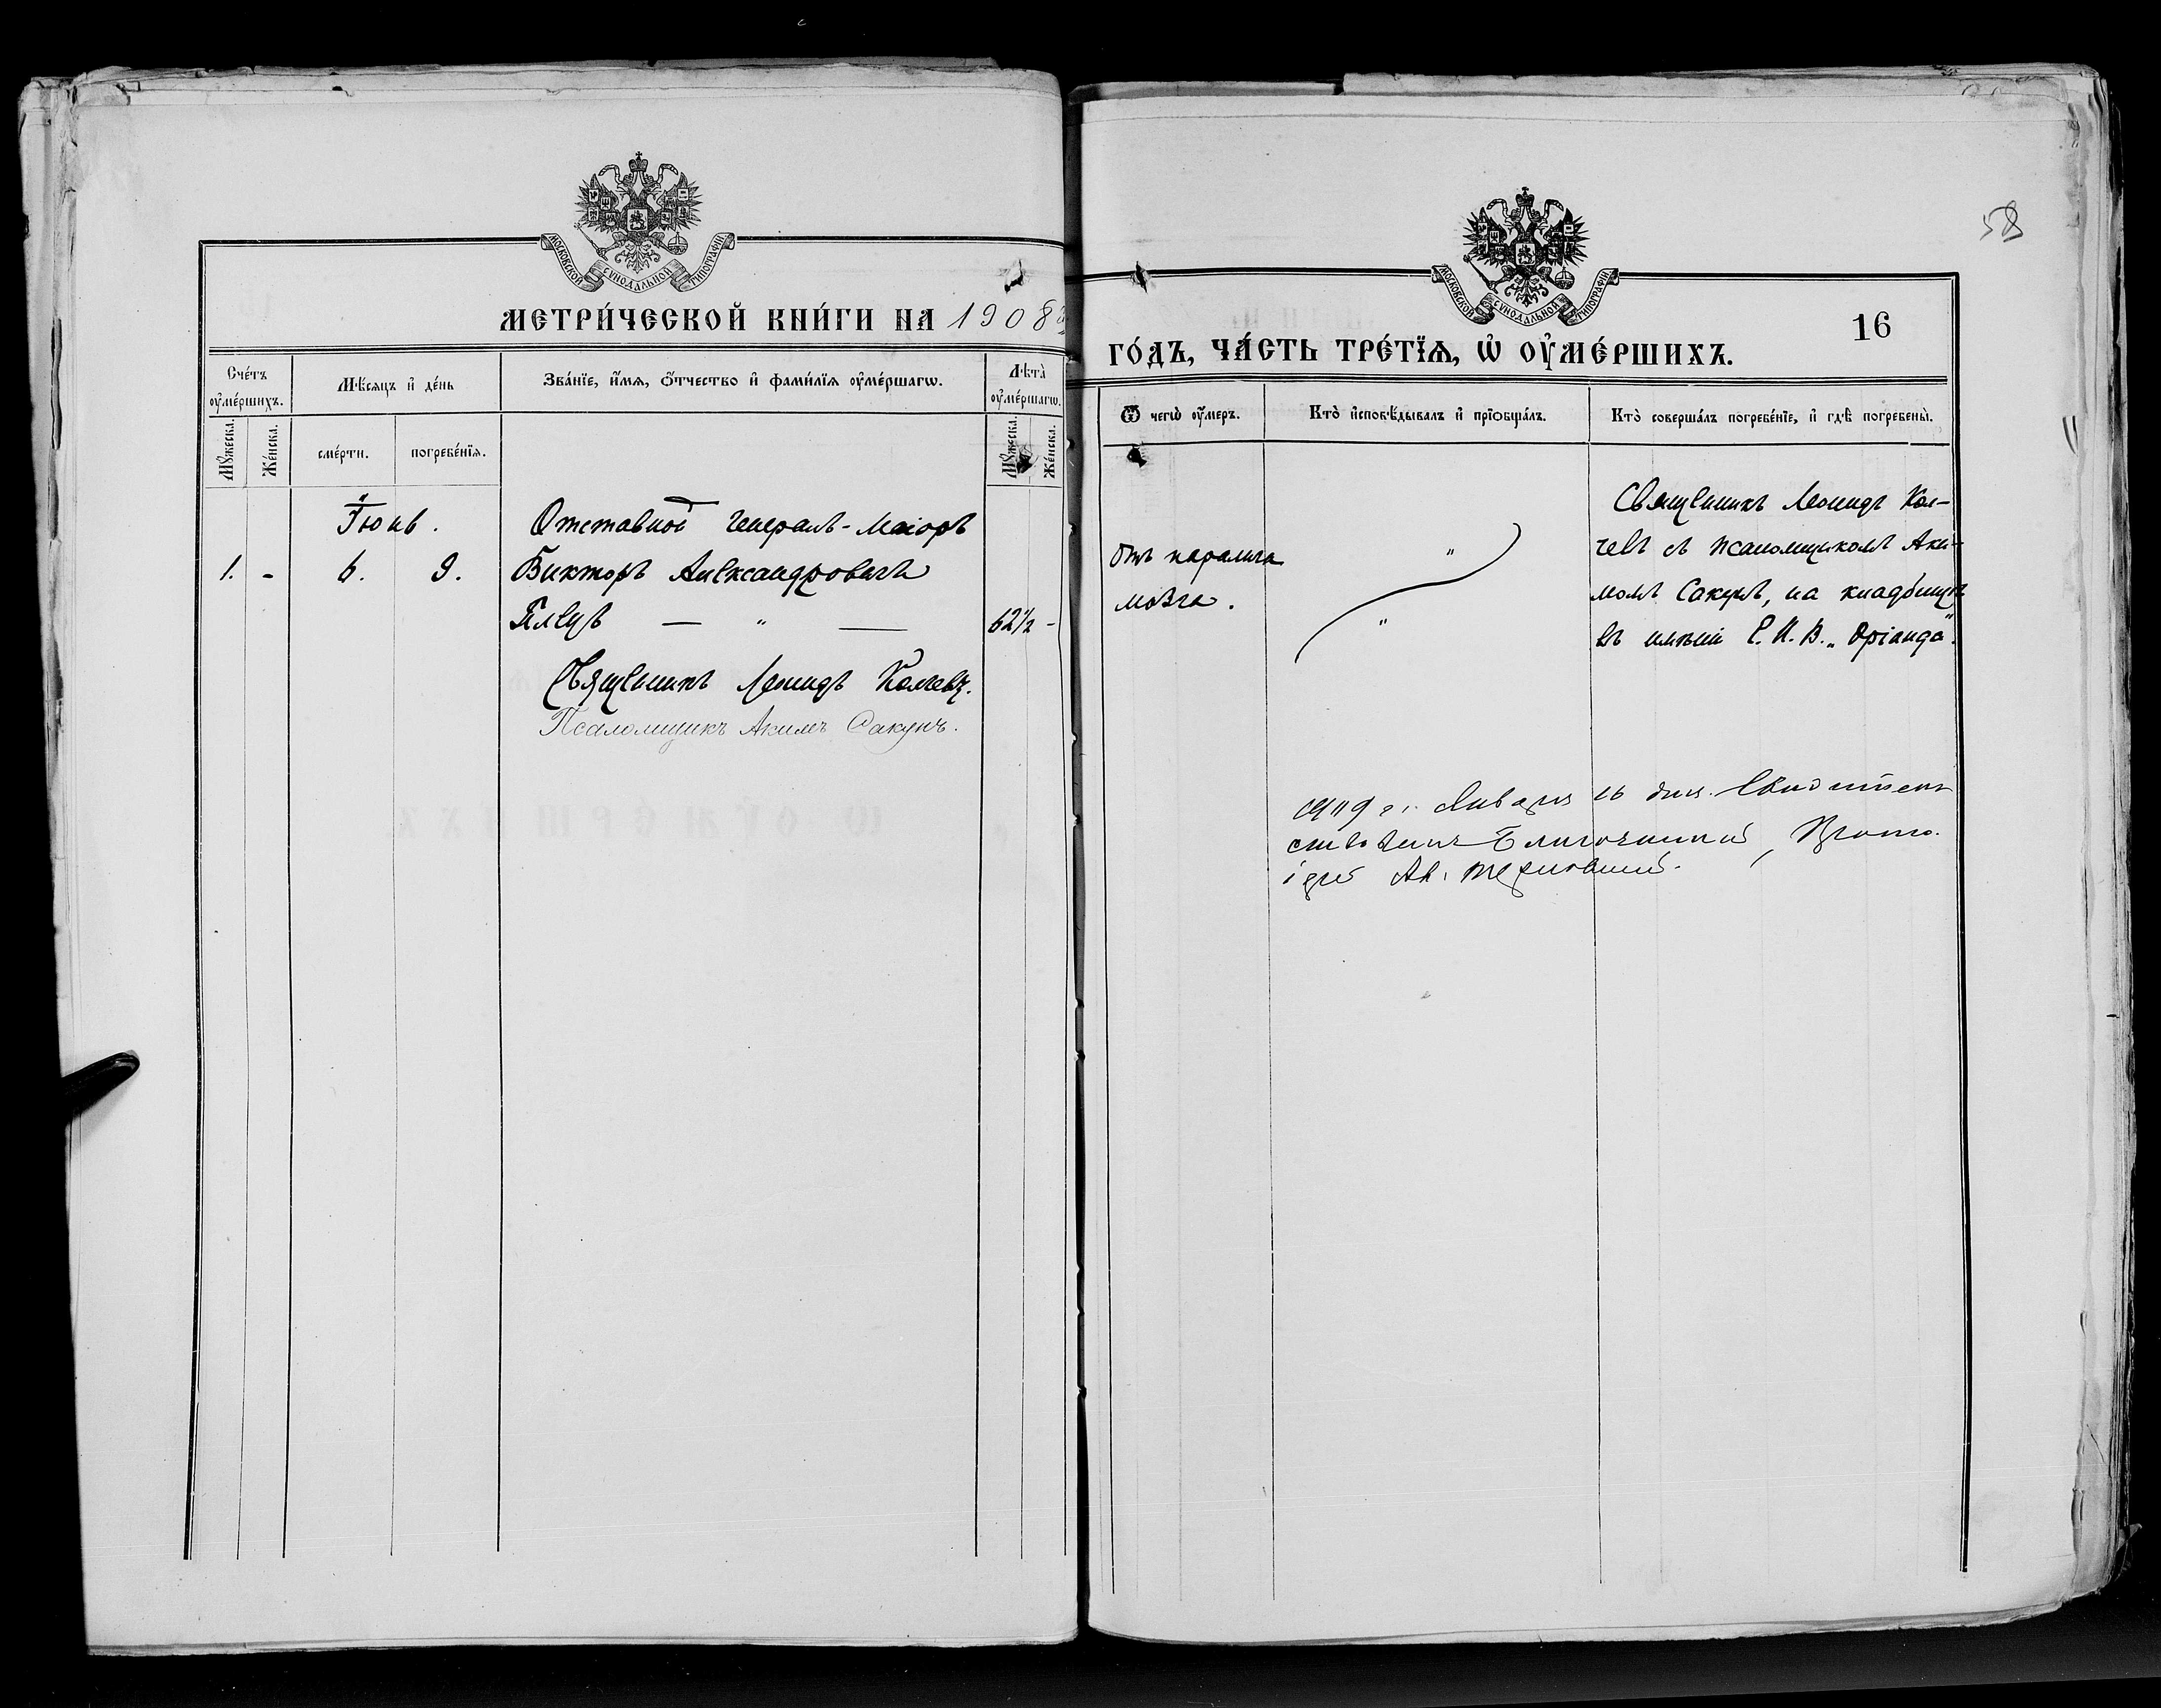 МОСКОВСКОЙ СѴНОДАЛЬНОЙ ТИПОГРАФІИ
МЕТРИ́ЧЕСКОЙ КНИ́ГИ НА 1908й
Сче́тъ ᲂу҆ме́ршихъ.
Мꙋ́жеска.
Же́нска.
Мѣ́сяцъ и҆ де́нь
сме́рти.
погребе́нїя.
Зва́нїе, и҆́мя, ѻ҆́тчество и҆ фами́лїя ᲂу҆ме́ршагѡ.
Лѣ́та ᲂу҆ме́ршагѡ.
Мꙋ́жеска.
Же́нска.
Іюнь.
Отставной Генералъ-Маіоръ
1. - 6. 9. Викторъ Александровичъ
62½ -
Священникъ Леонидъ Колчевъ.
Псаломщикъ Акимъ Сакунъ.
58
МОСКОВСКОЙ СѴНОДАЛЬНОЙ ТИПОГРАФІИ
16
ГО́ДЪ, ЧА́СТЬ ТРЕ́ТЇѦ, Ѡ҆ ОУ҆МЕ́РШИХЪ.
Ѿ чегѡ̀ ᲂу҆́меръ.
Кто̀ и҆сповѣ́дывалъ и҆ прїѡбща́лъ.
Кто̀ соверша́лъ погребе́нїе, и҆ гдѣ̀ погребены̀.
Отъ паралича
мозга.
" "
Священникъ Леонидъ Кол-
чевъ съ псаломщикомъ Аки-
момъ Сакунъ, на кладбищѣ
въ имѣніи Е. И. В. „Оріанда".
1909 г. Января 16 дня. Свидѣтель
ствовалъ Благочинный, Прото.
іерей Ал. Терновскій.